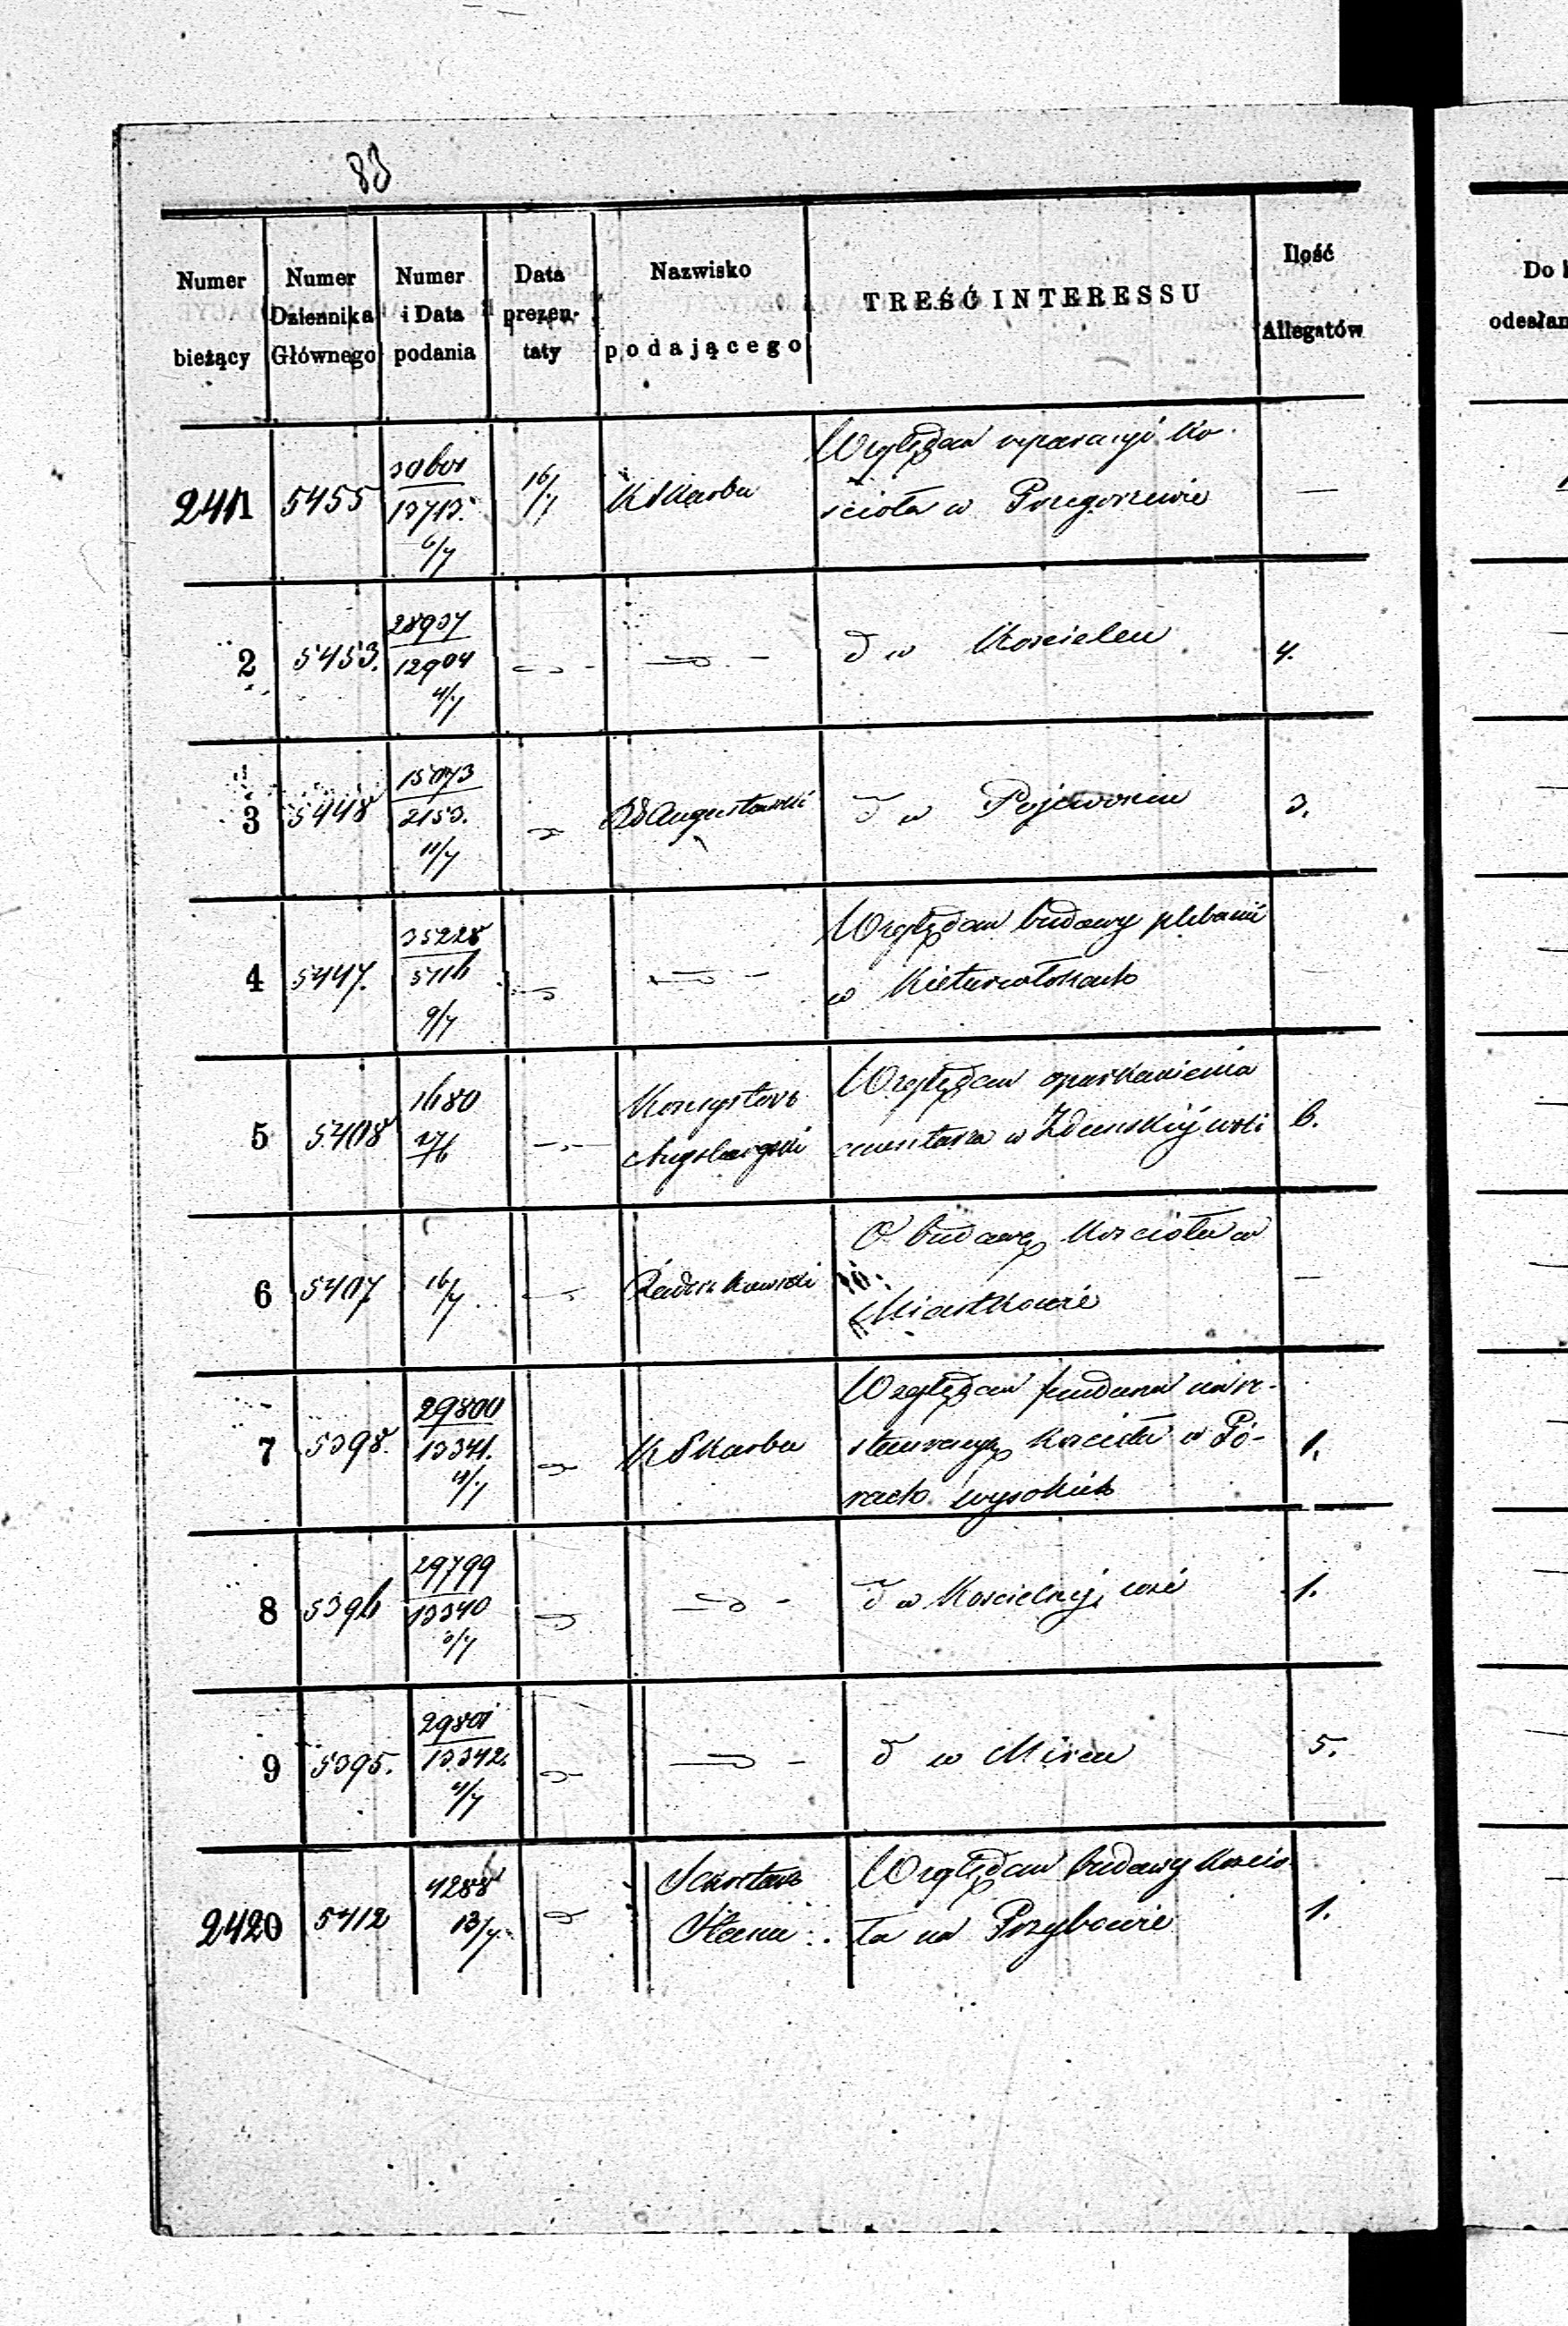 83
Numer bieżący | Numer Dziennika Głównego | Numer i Data podania | Data prezentaty | Nazwisko podającego | TREŚĆ INTERESSU | Ilość Allegatów
2411 | 5455 | 30601 / 13713. 6/7 | 16/7 | K Skarbu | Względem reparacyi Ko-
ścioła w Przegorzewie | —
2 | 5453. | 28937 / 12904 4/7 | — | — | d w Kościelcu | 4.
3 | 5448 | 15073 / 2153. 11/7 | — | Rd Augustowski | d w Pojewoniu | 3.
4 | 5447. | 35228 / 5716 9/7 | — | — | Względem budowy plebanii
w Kieturwłokach
5 | 5408 | 1680 27/6 | — | Konsystorz Augsburgski | Względem oparkanienia
cmentarza w Zduńskiéj woli | 6.
6 | 5407 | 16/7. | — | | O budowę Kościoła w
Miastkowie | —
7 | 5398. | 29800 / 13341. 4/7 | — | K Skarbu | Względem fundusz na re-
stauracyę Kościoła w Pó-
rach wysokich | 1.
8 | 5396 | 29799 / 13340 3/7 | — | — | d w Kościelnéj wsi | 1.
9 | 5395. | 29801 / 13342. 4/7 | — | — | d w Mircu | 5.
2420 | 5412 | 4288 13/7. | — | Sekretarz Stanu | Względem budowy Kościo-
ła na Grzybowie | 1.
Do
odesłan